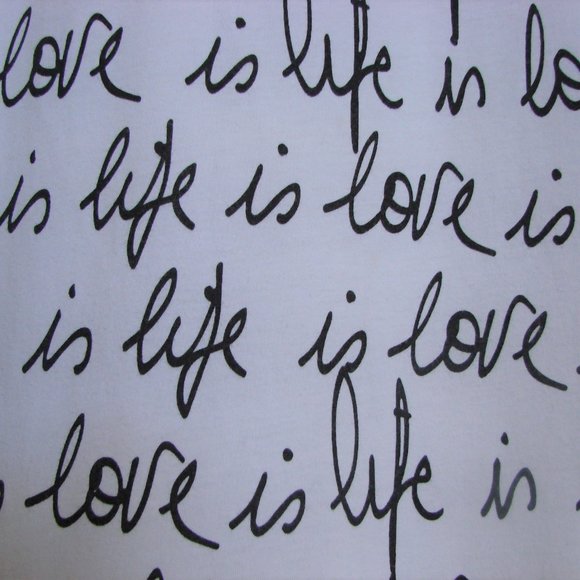 love is life is lo
is life is love is
is life is love
love is life is